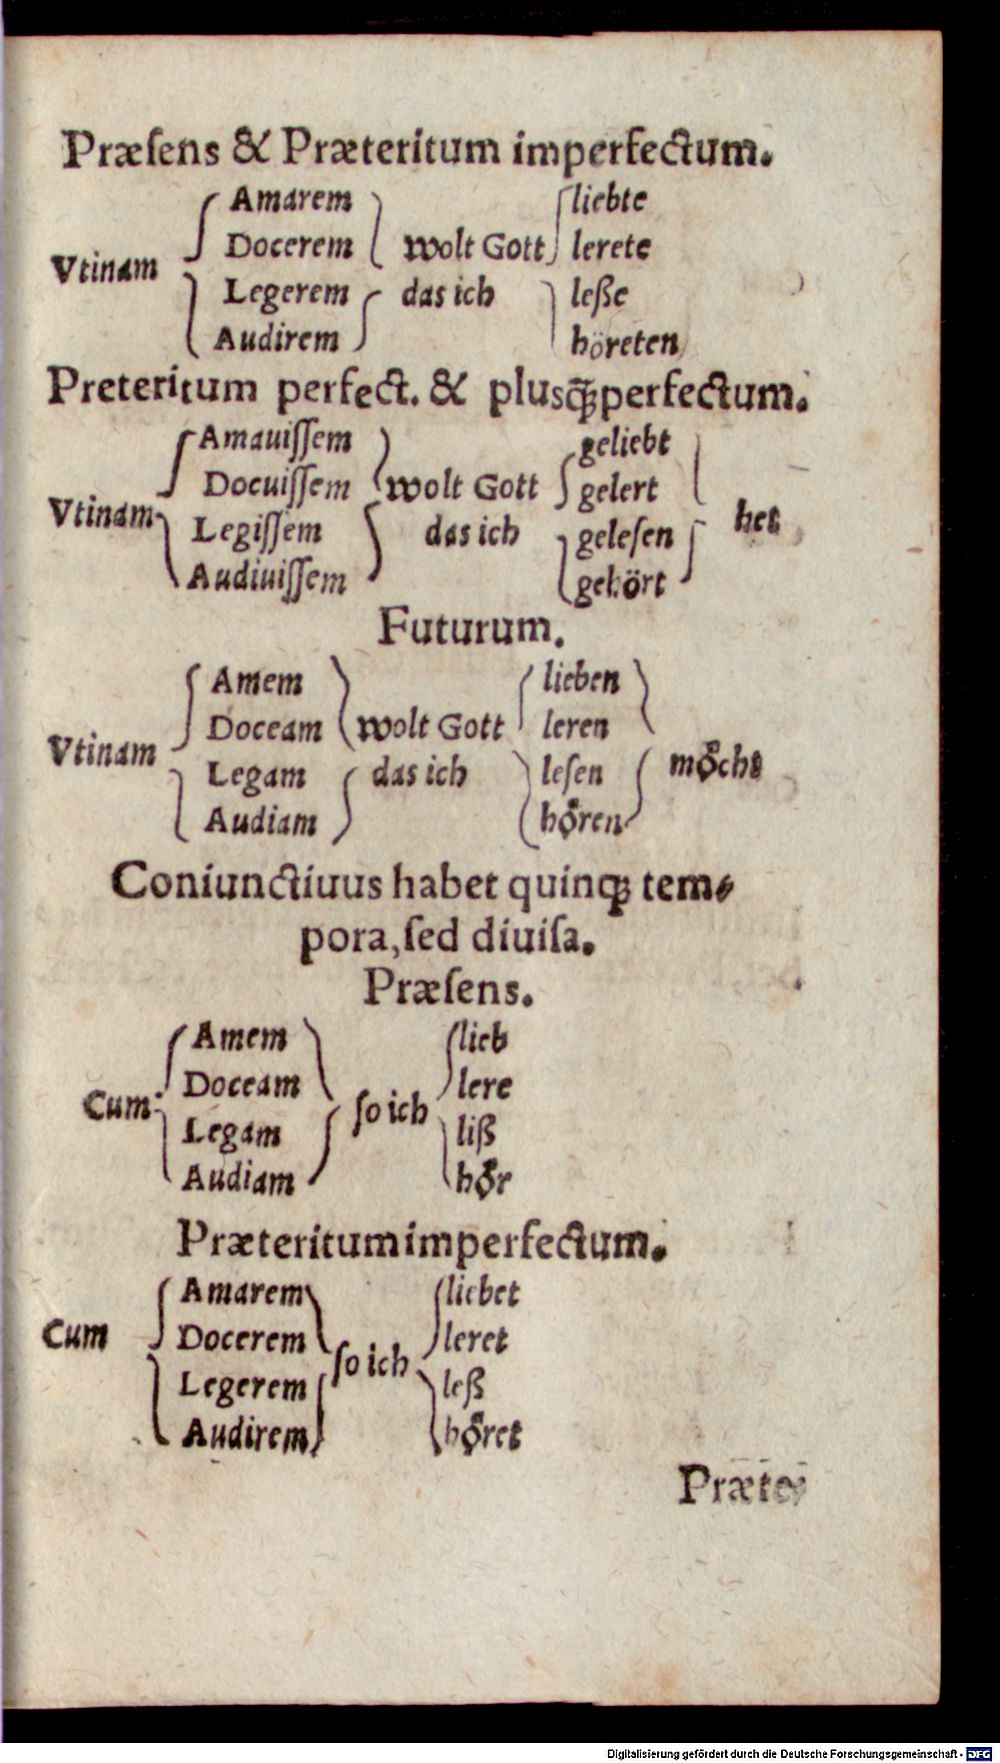 Præſens & Præteritum imperfectum.
Amarem liebte
Docerem wolt Gott lerete
Vtinam
Legerem das ich leße
Audirem höreten
Preteritum perfect. & plusq̃ꝫperfectum.
Amauiſſem geliebt
Docuiſſem wolt Gott gelert
Vtinam het
Legiſſem das ich geleſen
Audiuiſſem gehört
Futurum.
Amem lieben
Doceam wolt Gott leren
Vtinam moͤcht
Legam das ich leſen
Audiam hoͤren
Coniunctiuus habet quinqꝫ tem⸗
pora, ſed diuiſa.
Præſens.
Amem lieb
Doceam lere
Cum ſo ich
Legam liß
Audiam hoͤr
Præteritum imperfectum.
Amarem liebet
Docerem leret
Cum ſo ich
Legerem leß
Audirem hoͤret
Præte⸗
Digitalisierung gefördert durch die Deutsche Forschungsgemeinschaft - DFG